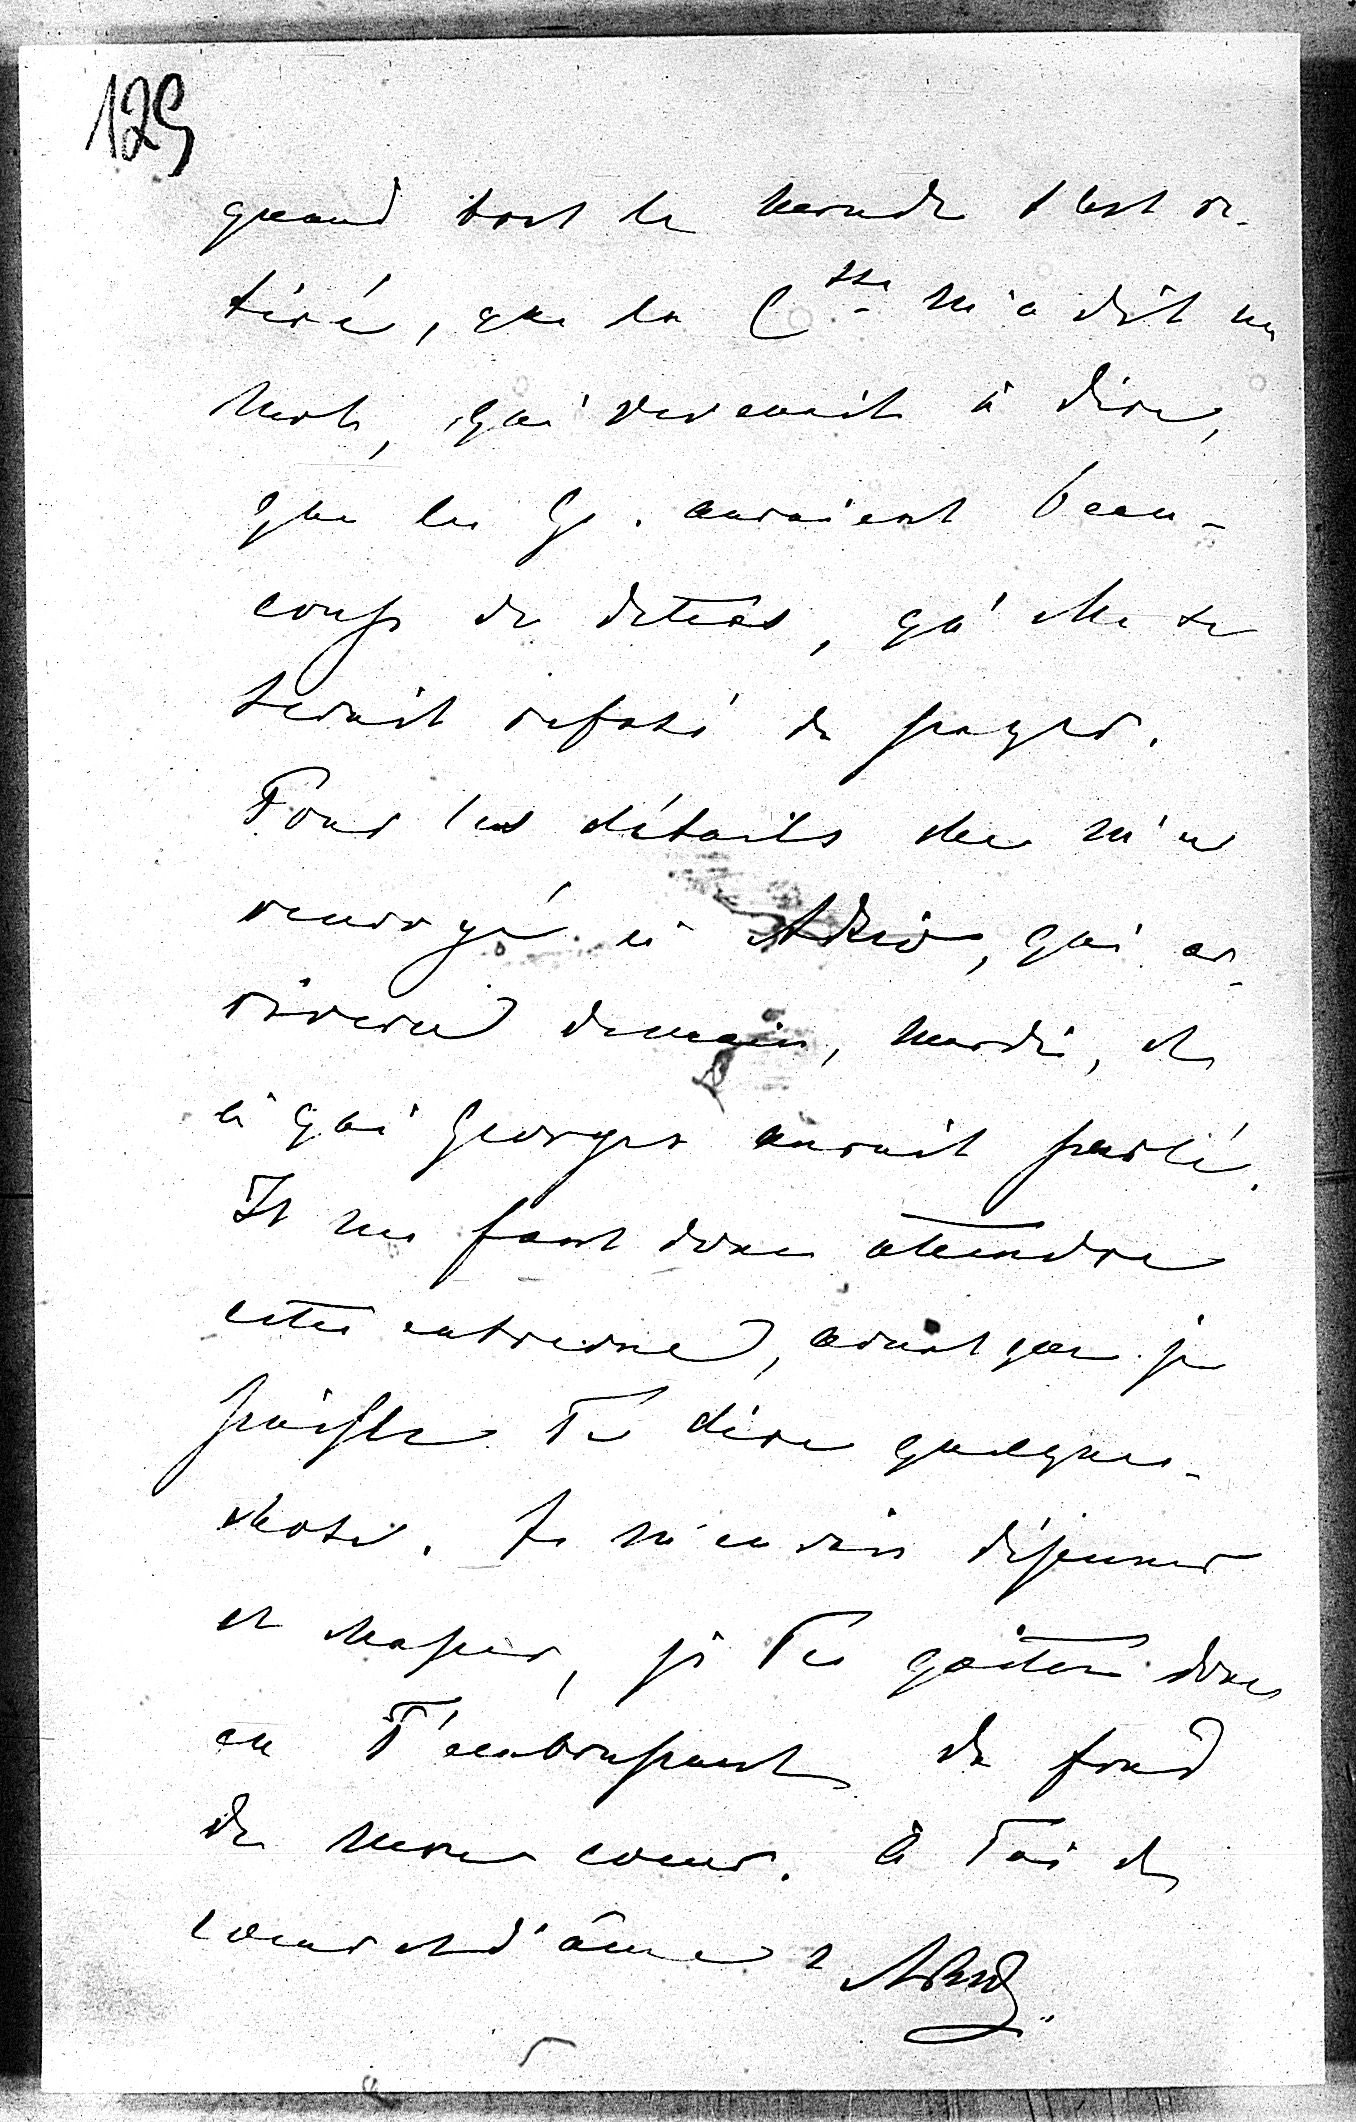 129
quand tout le monde s'est re-
tiré, que la C^sse m'a dit un
mot, qui revenait à dire,
que les G. auraient beau-
coup de dettes, qu'elle se
serait refusé de payer.
Pour les détails elle m'a
renvoyé à, qui ar-
rivera demain, mardi, et
à qui Georges aurait parlé.
Il me faut donc attendre
cette entrevue, avant que je
puisse Te dire quelque-
chose. Je m'en vais déjeuner
et chasser, je Te quitte donc
en T'embrassant du fond
de mon coeur. à Toi de
coeur et d'âme